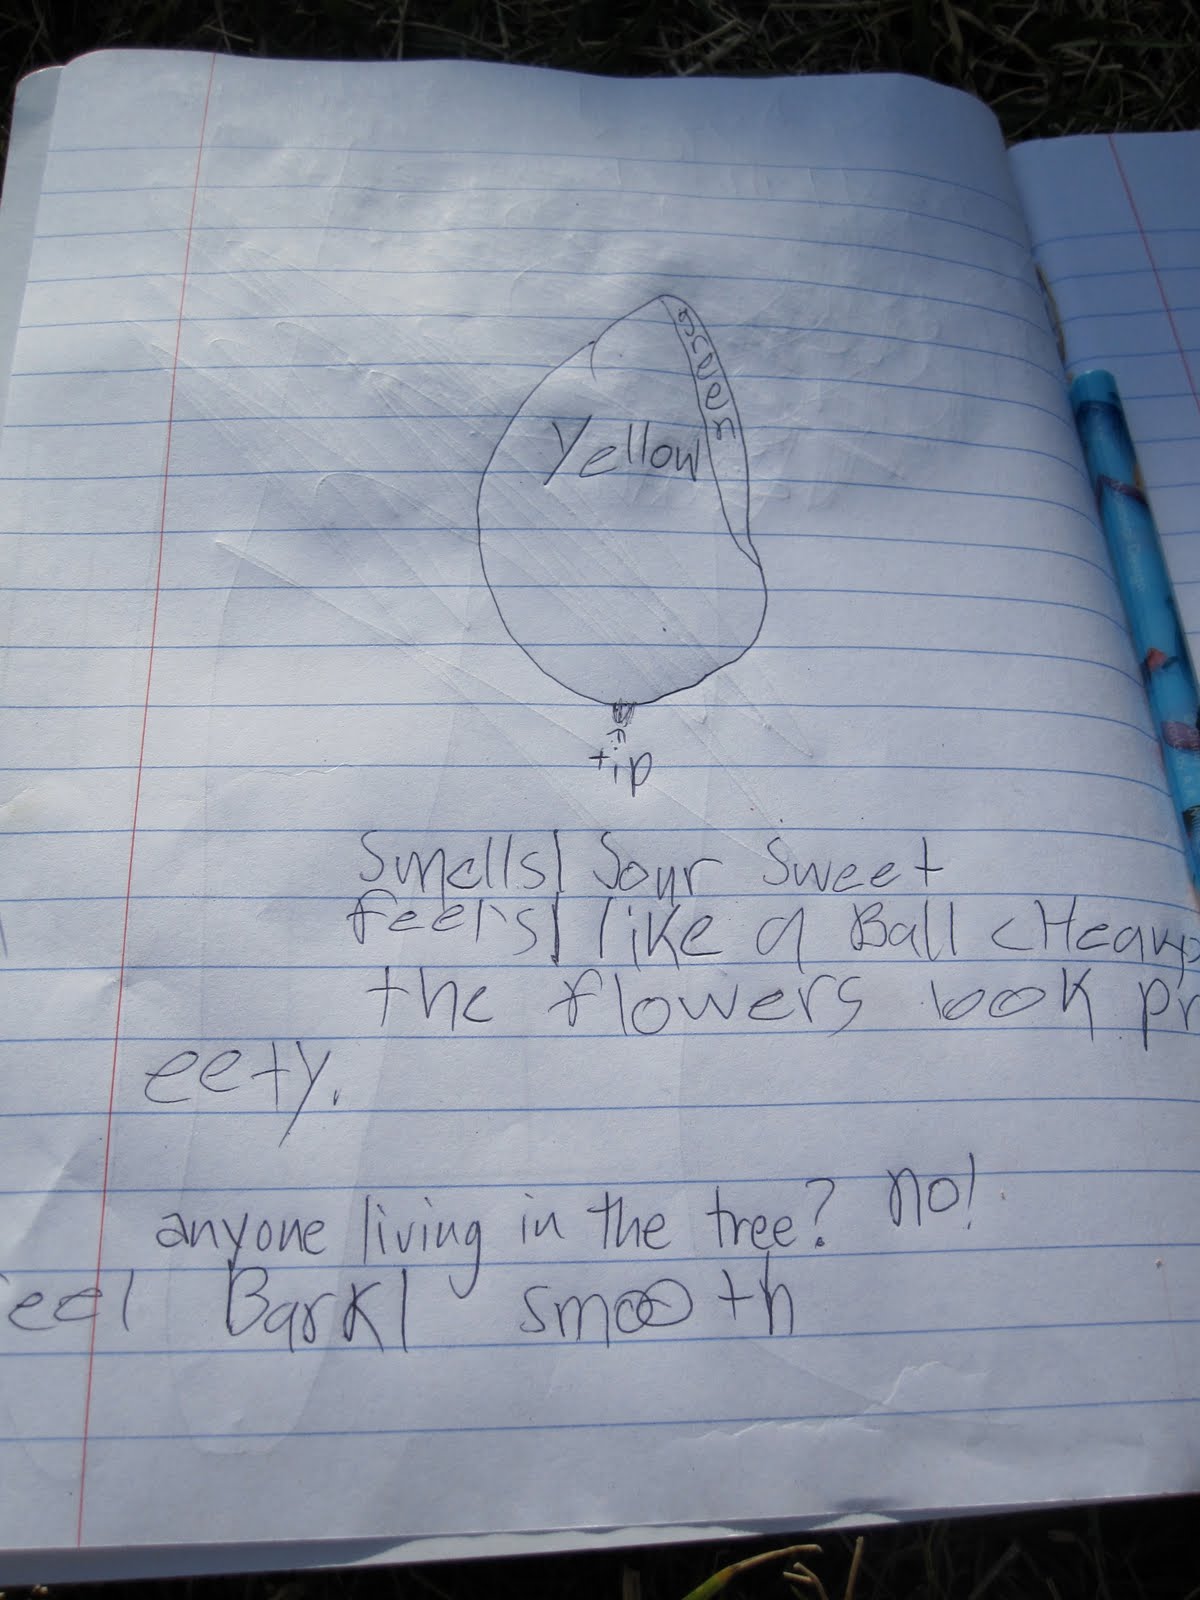 Yellow
tip
Smells| Sour Sweet
feels| like a Ball <Heavy>
the flowers look pr
eety.
anyone living in the tree? no!
eel Bark| smooth